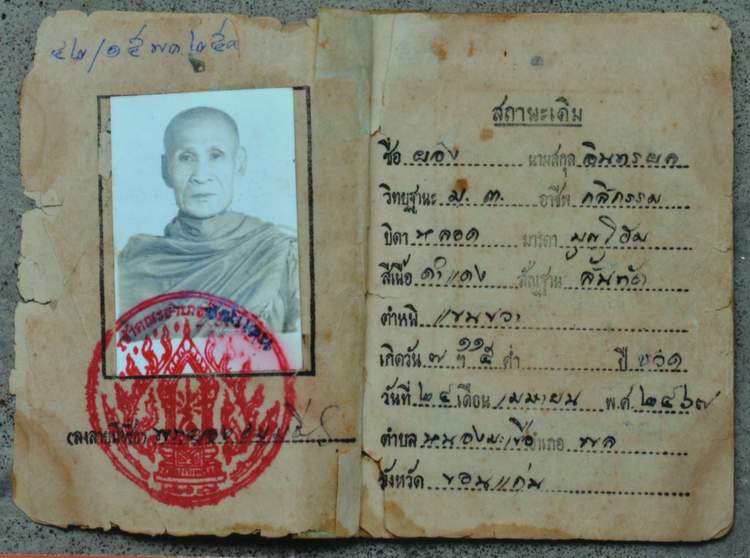 ๕๒/๑๕ พ.ค. ๒๕
เจ้าคณะอำเภอ
(ลงลายมือชื่อ)
สถานะเดิม
ชื่อ ผอง นามสกุล อินทรผล
วิทยฐานะ ป. ๓. อาชีพ กสิกรรม
บิดา หลอด มารดา บุญโฮม
สีเนื้อ ดำแดง สัณฐาน สันทัด
ตำหนิ แขนขวา
เกิดวัน ๗ ๑๑ ๕ ค่ำ ปี ชวด
วันที่ ๒๔ เดือน เมษายน พ.ศ. ๒๔๖๗
ตำบล หนองมะเขือ อำเภอ พล
จังหวัด ขอนแก่น